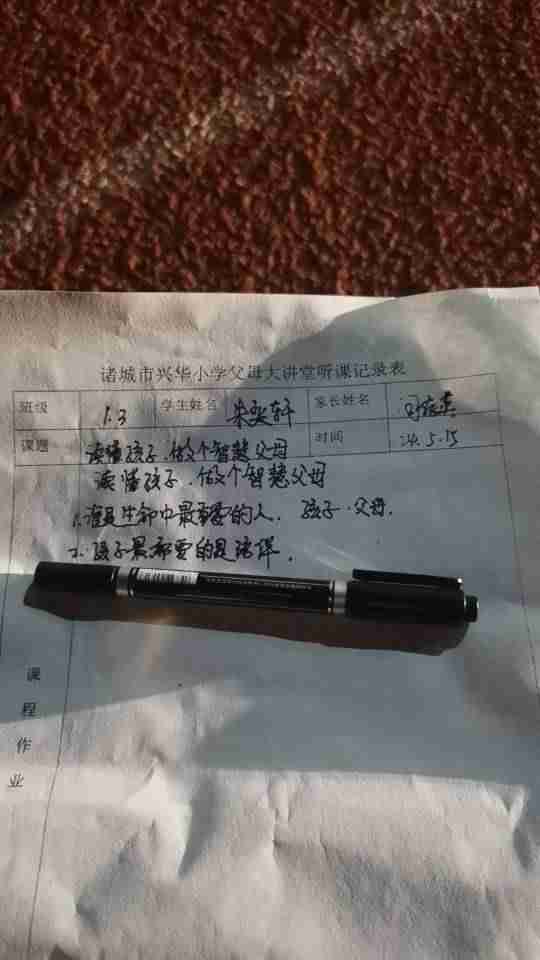 诸城市兴华小学父母大讲堂听课记录表
班级 1.3 学生姓名 朱奕轩 家长姓名
课题 读懂孩子.做个智慧父母 时间 24.5.15
读懂孩子.做个智慧父母
1.谁是生命中最重要的人. 孩子.父母.
2.孩子最需要的是陪伴.
课程作业